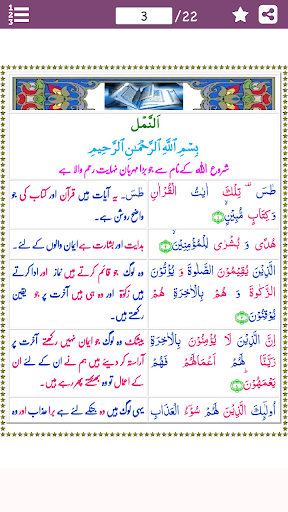 1 2 3
3 /22
اَلنَّمْل
بِسْمِ اللّٰهِ الرَّحْمٰنِ الرَّحِيْمِ
شروع اللہ کے نام سے جو بڑا مہربان نہایت رحم والا ہے
طٰسٓ ۚ تِلْكَ اٰيٰتُ الْقُرْاٰنِ
طٰسٓ۔ یہ آیات ہیں قرآن اور کتاب کی جو
وَ كِتَابٍ مُّبِيْنٍ ﴿۱﴾
واضح روشن ہے۔
هُدًى وَّ بُشْرٰى لِلْمُؤْمِنِيْنَ ﴿۲﴾
ہدایت اور بشارت ہے ایمان والوں کے لئے۔
الَّذِيْنَ يُقِيْمُوْنَ الصَّلٰوةَ وَ يُؤْتُوْنَ
وہ لوگ جو قائم کرتے ہیں نماز اور ادا کرتے
الزَّكٰوةَ وَ هُمْ بِالْاٰخِرَةِ هُمْ
ہیں زکوٰۃ اور وہ ہی ہیں جو آخرت پر جو
يُوْقِنُوْنَ ﴿۳﴾
یقین رکھتے ہیں۔
اِنَّ الَّذِيْنَ لَا يُؤْمِنُوْنَ بِالْاٰخِرَةِ
بیشک وہ لوگ جو ایمان نہیں رکھتے آخرت پر
زَيَّنَّا لَهُمْ اَعْمَالَهُمْ فَهُمْ
آراستہ کر دیئے ہیں ہم نے ان کے لئے ان
يَعْمَهُوْنَ ﴿۴﴾
کے اعمال تو وہ بھٹکتے پھر رہے ہیں۔
اُولٰٓئِكَ الَّذِيْنَ لَهُمْ سُوْٓءُ الْعَذَابِ
یہی لوگ ہیں وہ جنکے لئے ہے برا عذاب اور وہ